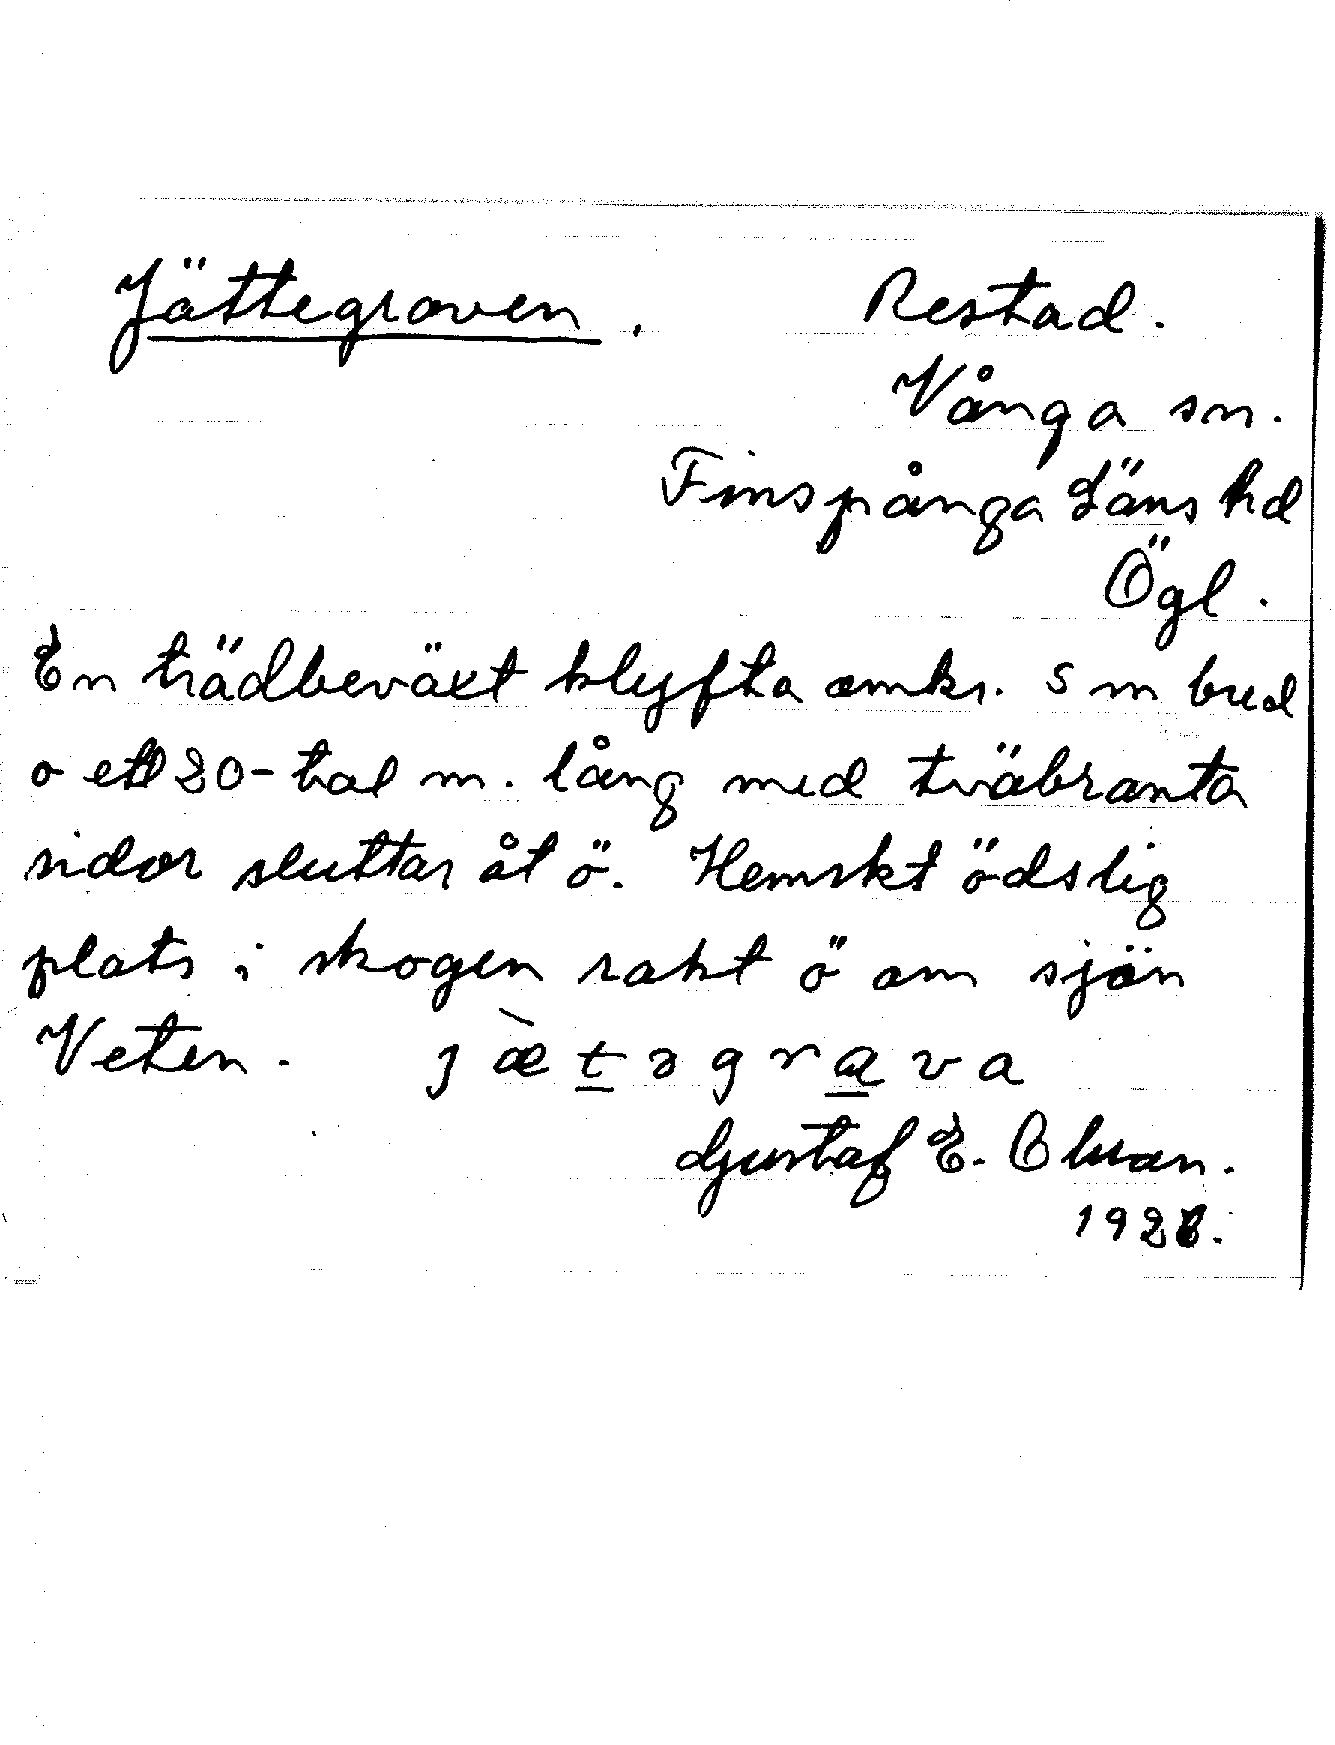 Jättegraven. Restad.
Vånga sn.
Finspånga Läns hd
Ögl.
En trädbeväxt klyfta omkr. 5 m bred
o ett 20-tal m. lång med tväbranta
sidor sluttar åt ö. Hemskt ödslig
plats i skogen rakt ö om sjön
Veten. jæ̀təgrava
Gustaf E. Olsson.